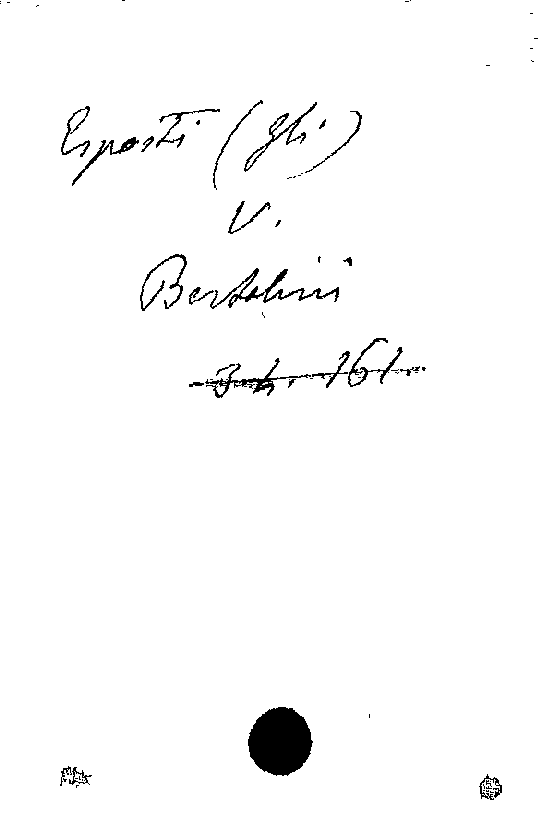 Esposti (Gli)
V.
Bertolini
3. h. 161.